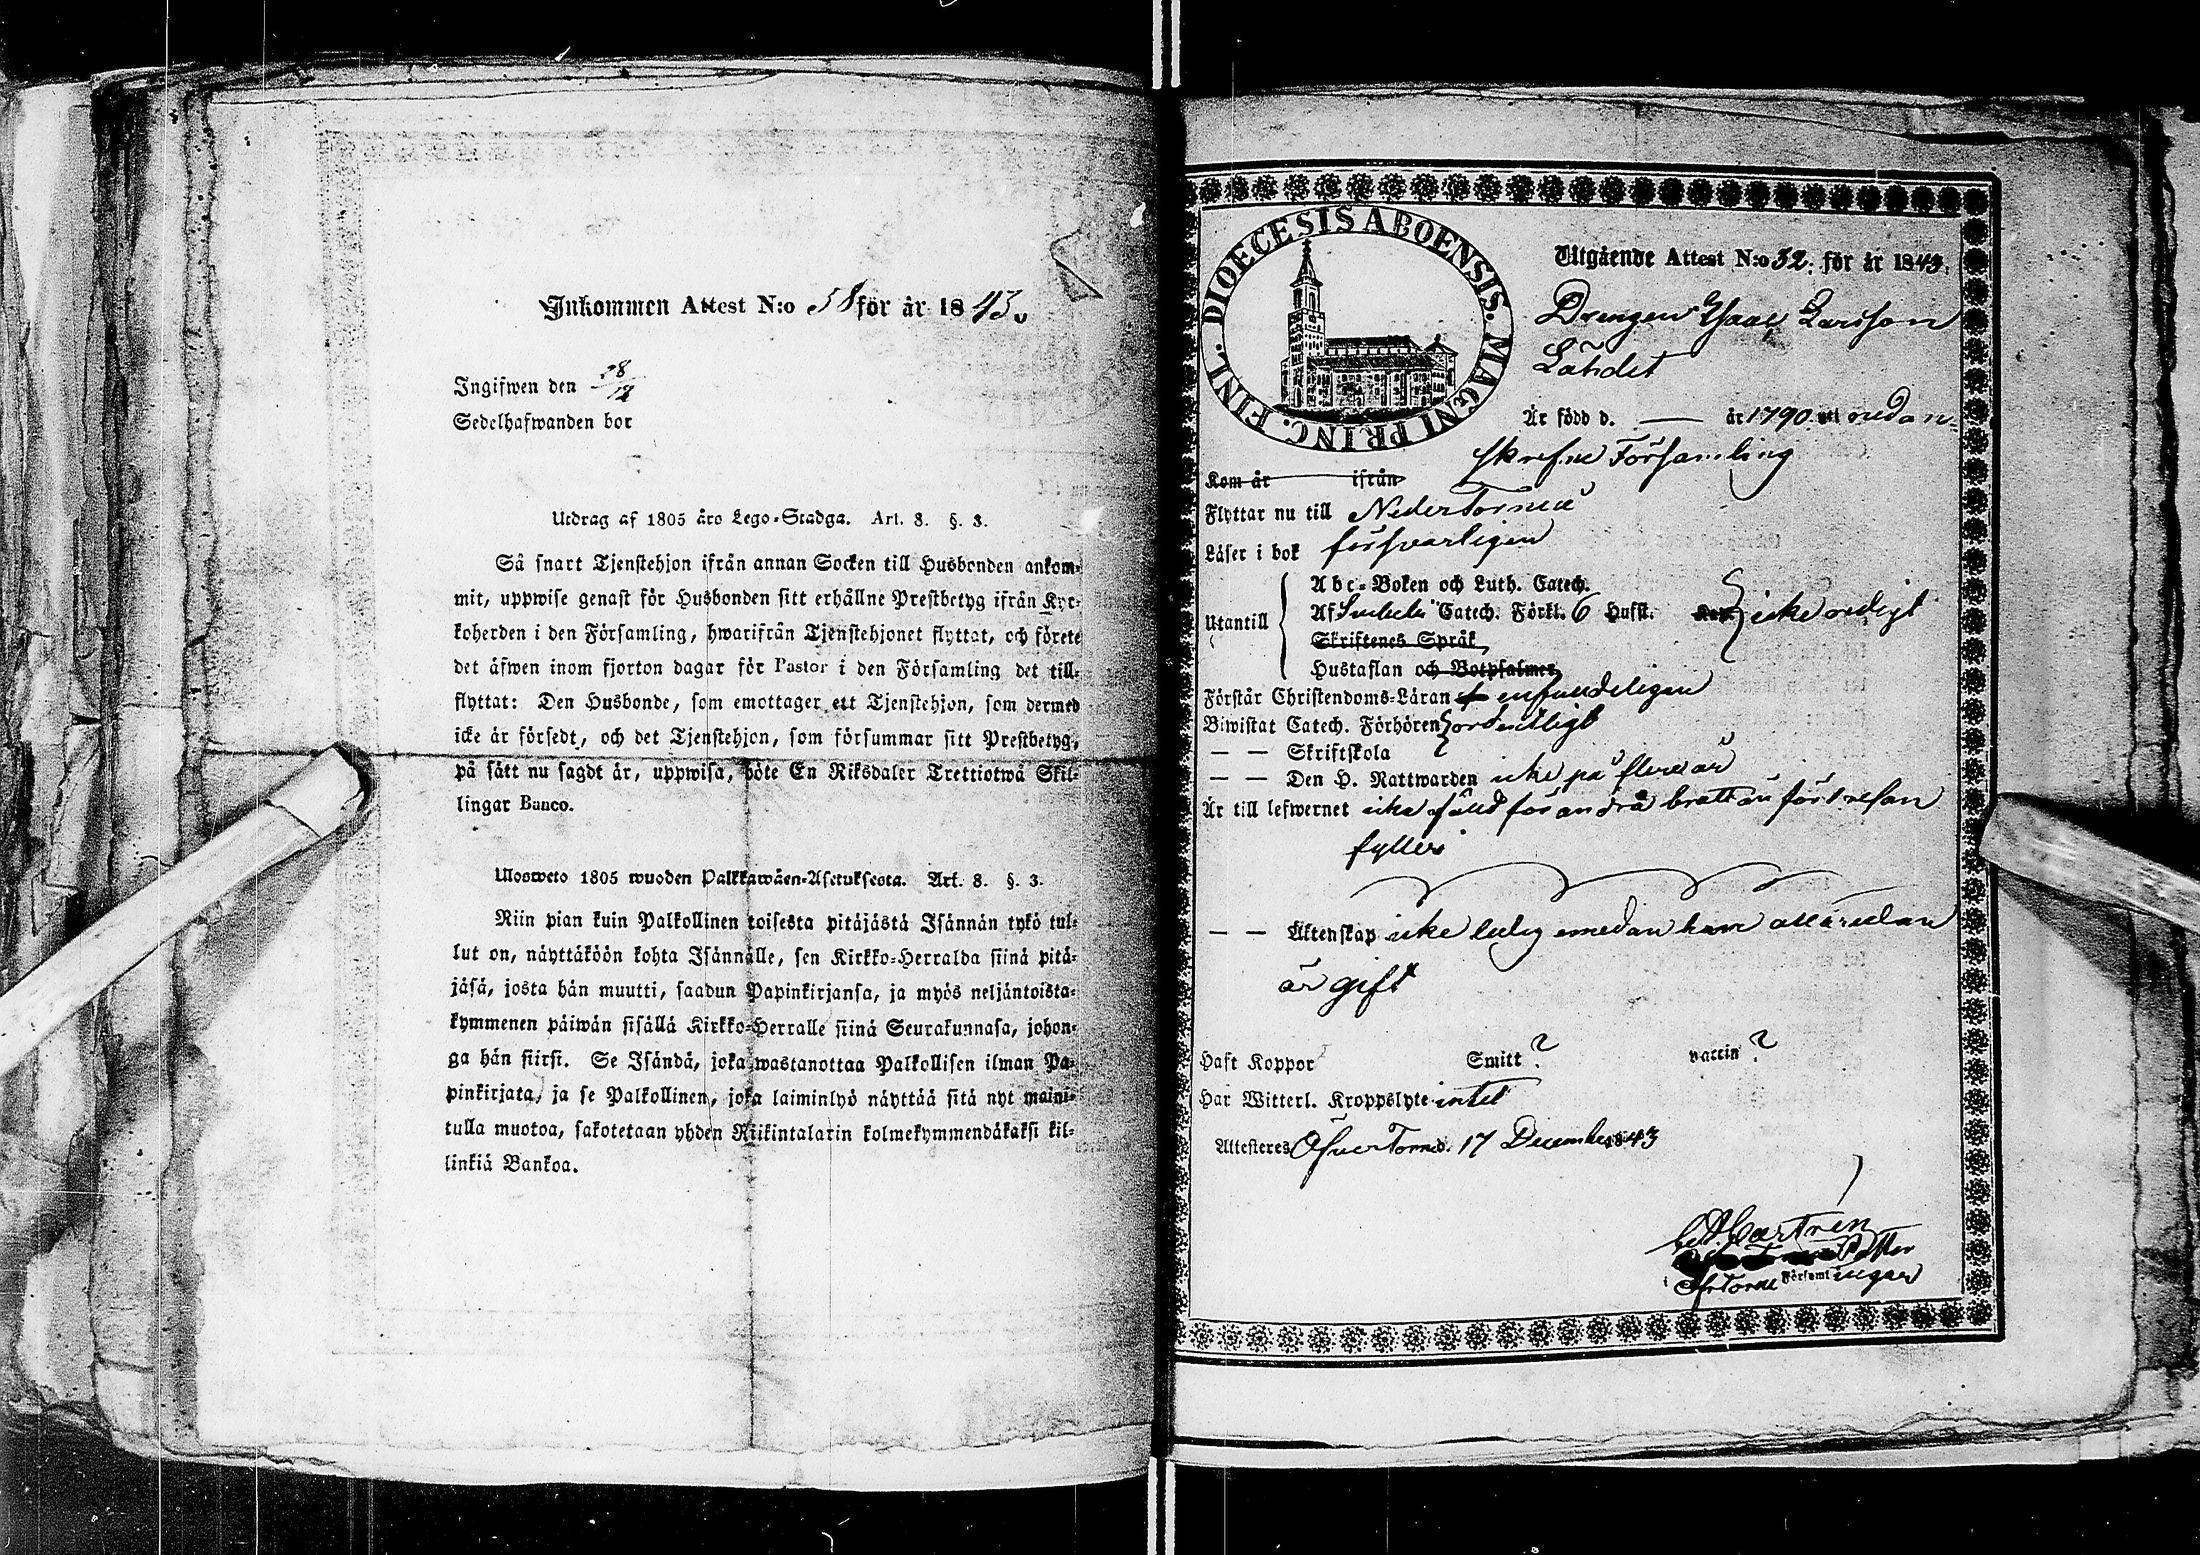 Inkommen Attest N:o 58 för år 1843.
Ingifwen den 28/12
Sedelhafwanden bor
Utdrag af 1805 års Lego-Stadga. Art. 8. §. 3.
Så snart Tjenstehjon ifrån annan Socken till Husbonden ankom-
mit, uppwise genast för Husbonden sitt erhållne Prestbetyg ifrån Kyr-
koherden i den Församling, hwarifrån Tjenstehjonet flyttat, och förete
det äfwen inom fjorton dagar för Pastor i den Församling det till-
flyttat: Den Husbonde, som emottager ett Tjenstehjon, som dermed
icke är försedt, och det Tjenstehjon, som försummar sitt Prestbetyg,
på sätt nu sagdt är, uppwisa, böte En Riksdaler Trettiotwå Skil-
lingar Banco.
Ulosweto 1805 wuoden Palkkawäen-Asetuksesta. Art. 8. §. 3.
Niin pian kuin Palkollinen toisesta pitäjästä Isännän tykö tul-
lut on, näyttäköön kohta Isännälle, sen Kirkko-Herralda siinä pitä-
jäsä, josta hän muutti, saadun Papinkirjansa, ja myös neljäntoista-
kymmenen päiwän sisällä Kirkko-Herralle siinä Seurakunnasa, johon-
ga hän siirsi. Se Isändä, joka wastanottaa Palkollisen ilman Pa-
pinkirjata, ja se Palkollinen, joka laiminlyö näyttää sitä nyt maini-
tulla muotoa, sakotetaan yhden Riikintalarin kolmekymmendäkaksi kil-
linkiä Bankoa.
DIOECESIS ABOENSIS. MAGNI PRINC. FINL.
Utgående Attest N:o 52. för år 1843.
Drengen Isaac Larsson
Lahdet
Är född d. — år 1790 uti nedan-
skrefne Församling
Kom år ifrån
Flyttar nu till Neder Torneå
Läser i bok försvarligen
Utantill
Abc-Boken och Luth. Catech.
Af Catech. Förkl. 6 Hufst. icke redigt
Skriftenes Språk
Hustaflan och Botpsalmer
Förstår Christendoms-Läran
Biwistat Catech. Förhören ordentligt
— — Skriftskola
— — Den H. Nattwarden icke på flere år
Är till lefwernet icke för andra brott än för resan
fylleri
— — Äktenskap icke ledig emedan han allaredan
är gift
Haft Koppor Smitt ? vaccin ?
Har Witterl. Kroppslyte intet
Attesteres Öfver Torneå d. 17 December 1843
Castrén
i Församlingar